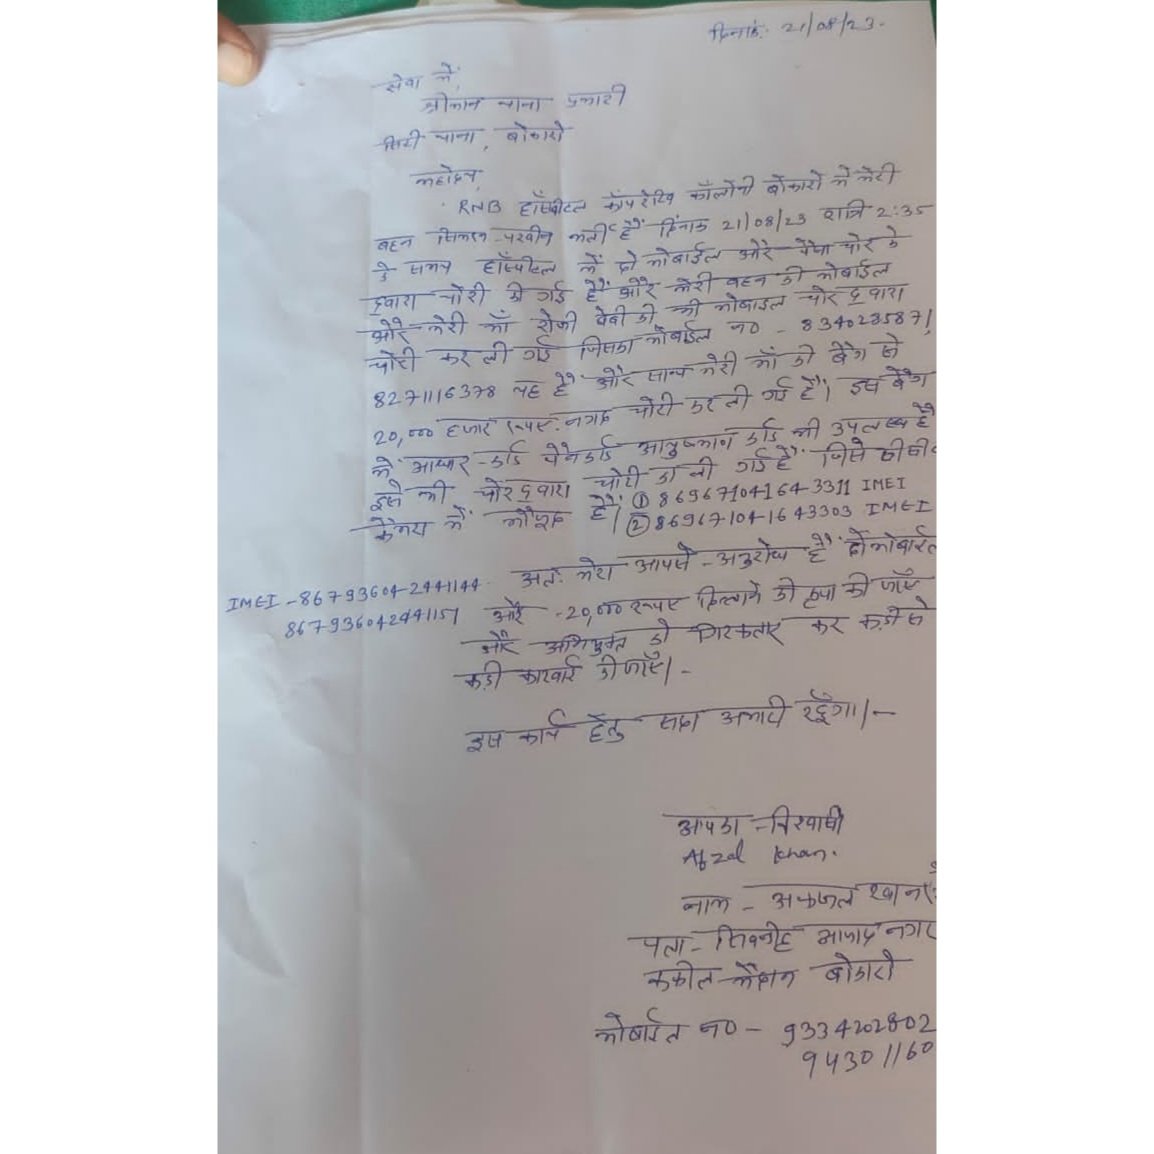 दिनांक: 21/08/23.
सेवा में,
श्रीमान थाना प्रभारी
सिटी थाना, बोकारो
महोदय,
RNB हॉस्पीटल कॉपरेटिव कॉलोनी बोकारो में मेरी
बहन परवीन भर्ती है दिनांक 21/08/23 रात्रि 2:35
के समय हॉस्पीटल में दो मोबाईल और पैसा चोर के
द्वारा चोरी की गई है और मेरी बहन की मोबाईल
और मेरी माँ रोजी बेबी की भी मोबाइल चोर द्वारा
चोरी कर ली गई जिसका मोबाईल न० - 8340285871,
8271116378 यह है और साथ मेरी माँ की बैग से
20,000 हजार रूपए नगद चोरी कर ली गई है। इस बैग
में आधार-कार्ड पेनकार्ड आयुष्मान कार्ड भी उपलब्ध है
इसे भी चोर द्वारा चोरी कर ली गई है जिसे सीसी
कैमरा में मौजूद है। ① 869671041643311 IMEI
② 869671041643303 IMEI
अतः मेरा आपसे अनुरोध है दो मोबाईल
IMEI - 867936042441144
और 20,000 रूपए दिलाने की कृपा की जाएँ
867936042441151
और अभियुक्त को गिरफ्तार कर कड़ी से
कड़ी कारवाई की जाएँ।-
इस कार्य हेतु सदा आभारी रहूँगा।-
आपका विश्वासी
Afzal Khan.
नाम - अफजल खान
पता- सिवनडीह आजाद नगर
मैदान बोकारो
मोबाईल न० - 9334202802
94301160